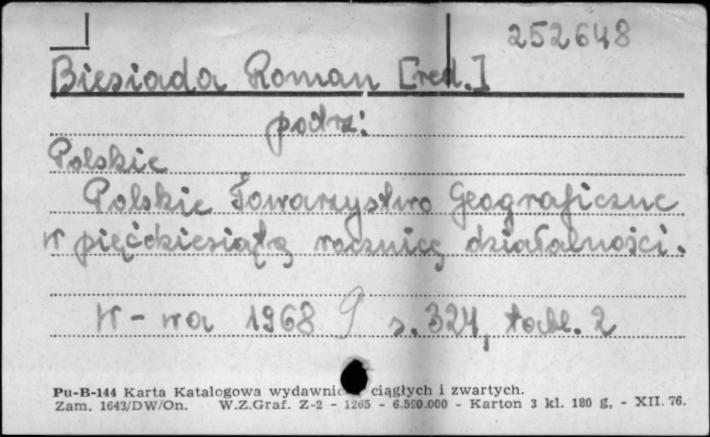 252648
Biesiada Roman [red.]
patrz:
Polskie
Polskie Towarzystwo Geograficzne
w pięćdziesiątą rocznicę działalności.
W-wa 1968 9 s. 324, tabl. 2
Pu-B-144 Karta Katalogowa wydawnic ciągłych i zwartych.
Zam. 1643/DW/On. W.Z.Graf. Z-2 - 1265 - 6.590.000 - Karton 3 kl. 180 g, - XII. 76.